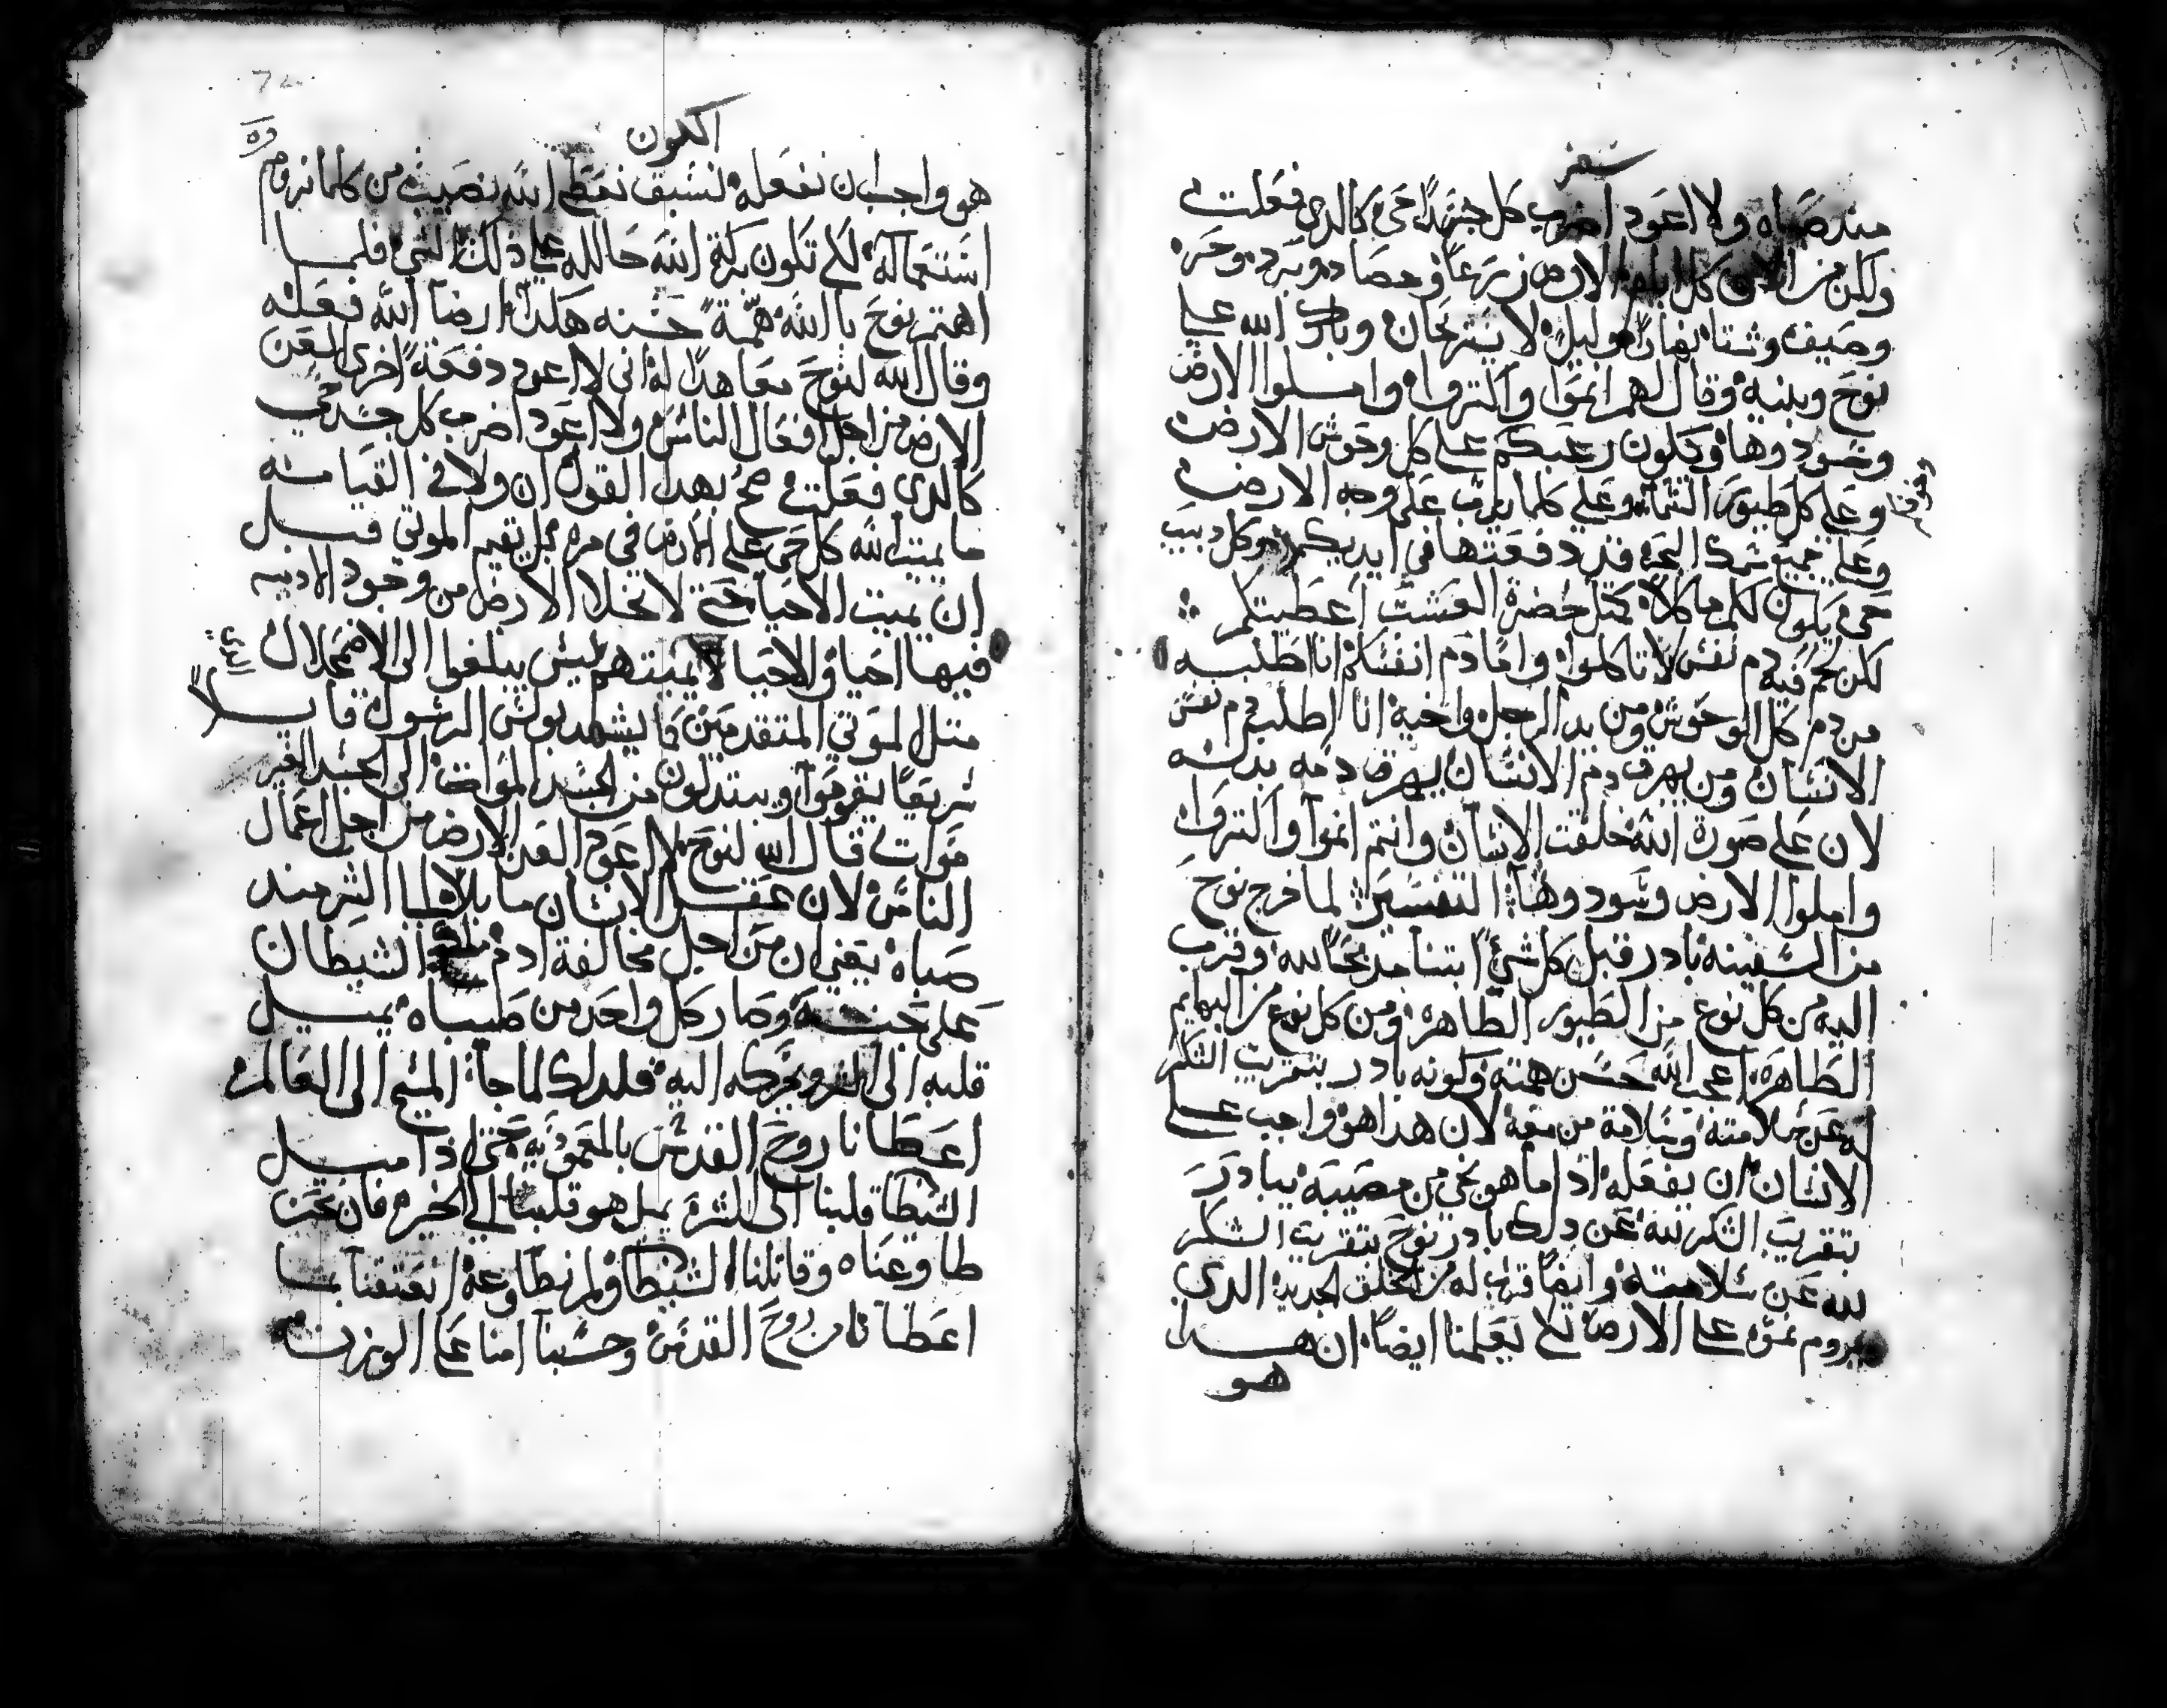 سفر
مند صباه ولا اعود اضرب كل جسدًا حي كالدي فعلت
ولكن من الان كل ايام الارض زرعًا وحصاد وبرد وحر
وصيف وشتا نهارًا وليل لا يستريحان وبارك الله علي
نوح وبنيه وقال لهم انموا واكتروا واملوا الارض
وتسودوها ويكون رعبكم علي كل وحوش الارض
وخوفكم
وعلي كل طيور السما وعلي كلما يدب علي وجه الارض
وعلي جميع سمك البحر قد دفعتها في ايديكم وكل دبيب
حي يكون لكم ماكلا كمتل خضرة العشب اعطيتكم
لكن لحم فيه دم نفس لا تاكلوا واما دم انفسكم انا اطلبه
من دم كل الوحوش ومن يد الرجل واخيه انا اطلب دم نفس
الانسان ومن يهرق دم الانسان يهرق دمه بدله
لان علي صورة الله خلقت الانسان وانتم انموا واكتروا
واملوا الارض وسودوها التفسير لما خرج نوح
من السفينه بادر قبل كل شيًا بتنا مدبحًا لله وقرب
اليه من كل نوع من الطيور الطاهره ومن كل نوع من البهايم
الطاهره اعجب الله حسن همته وكونه بادر بتقريب الشكر
له عن سلامته وسلامة من معه لان هدا هو واجب علي
الانسان ان يفعله ادا ما هو نجي من مصيبه يبادر
بتقريب الشكر لله عن دلك بادر نوح بتقريب الشكر
لله عن سلامته وايضًا قرب له من الخلق الجديد الدي
يروم نموه علي الارض لكي يعلمنا ايضًا ان هدا
هو
الكون
هو واجب ان نفعله نسبق نعطي الله نصيب من كلما نروم
استعماله لكي تكون بركة الله حالله علي ذلك الشي فلما
اهتم نوح بالله همةً حسنه هكدا ارضا الله فعله
وقال الله لنوح معاهدًا له اني لا اعود دفعةً اخري العن
الارض من اجل افعال الناس ولا اعود اضرب كل جسد حي
كالدي فعلت صح بهدا القول ان ولا في القيامه
ما يميت الله كل حي علي الارض في مره بل يقيم الموتي قبل
ان يميت الاحيا حتي لا تخلا الارض من وجود الادميه
فيها احيا والاحيا لا يميتهم ليس يبلغوا الي الاضمحلال
متل الموتي المتقدمين كما يشهد بولس الرسول قايلا
سريعًا يقوموا ويبتدلون من الجسد المواتي الي الجسد الغير
مواتي قال الله لنوح لا اعود العن الارض من اجل اعمال
الناس لان عقل الانسان مايلا الي الشر مند
صباه يعني ان من اجل مخالفة ادم الشيطان
علي جنسه وصار كل واحد من صباه يميل
قلبه الي الشر ويحركه اليه فلدلك لما جا المسيح الي العالم
اعطانا روح القدس بالمعموديه حتي اذا ميل
الشيطان قلبنا الي الشر يميل هو قلبنا الي الخير فان نحن
طاوعناه وقاتلنا الشيطان ولم نطاوعه
اعطانا من روح القدس وحسبنا امنا علي الوزنه